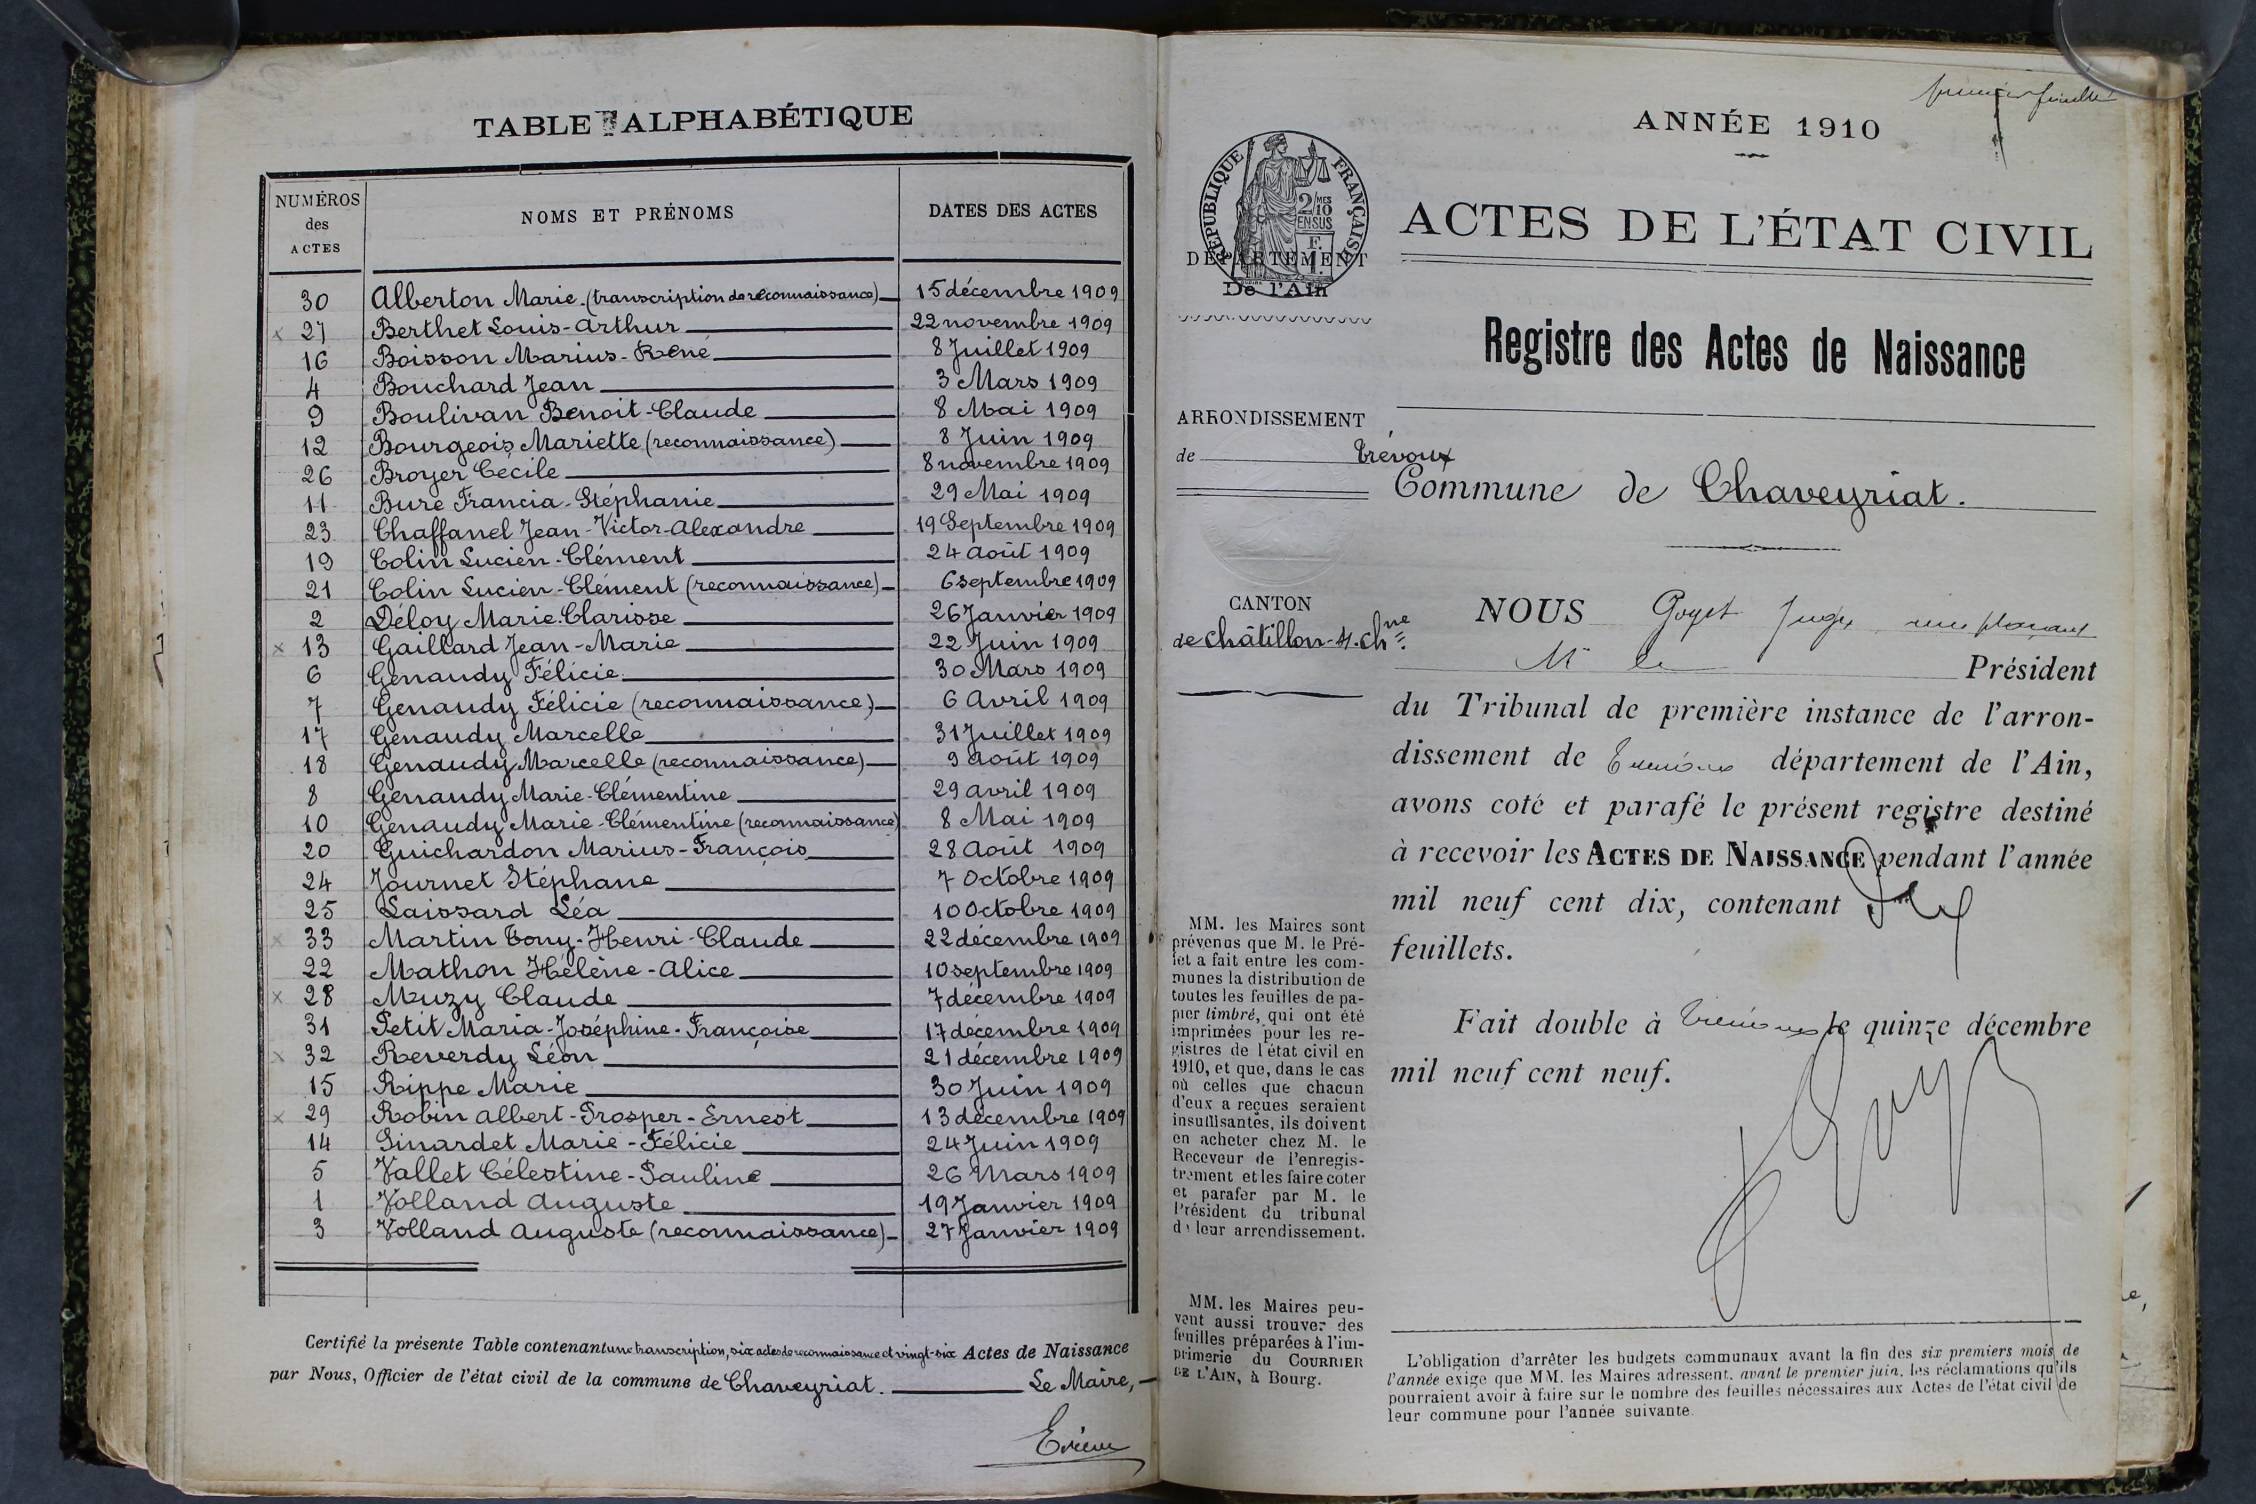 TABLE ALPHABÉTIQUE
NUMÉROS des ACTES NOMS ET PRÉNOMS DATES DES ACTES
30 Alberton Marie. (transcription de reconnaissance) 15 décembre 1909
x 27 Berthet Louis-Arthur 22 novembre 1909
16 Boisson Marius-René 8 Juillet 1909
4 Bouchard Jean 3 Mars 1909
9 Boulivan Benoit-Claude 8 Mai 1909
12 Bourgeois Mariette (reconnaissance) 8 Juin 1909
26 Broyer Cecile 8 novembre 1909
11 Bure Francia-Stéphanie 29 Mai 1909
23 Chaffanel Jean-Victor-Alexandre 19 Septembre 1909
19 Colin Lucien-Clément 24 août 1909
21 Colin Lucien-Clément (reconnaissance) 6 septembre 1909
2 Déloy Marie-Clarisse 26 Janvier 1909
x 13 Gaillard Jean-Marie 22 Juin 1909
6 Genaudy Félicie 30 Mars 1909
7 Genaudy Félicie (reconnaissance) 6 Avril 1909
17 Genaudy Marcelle 31 Juillet 1909
18 Genaudy Marcelle (reconnaissance) 9 août 1909
8 Genaudy Marie-Clémentine 29 avril 1909
10 Genaudy Marie-Clémentine (reconnaissance) 8 Mai 1909
20 Guichardon Marius-François 28 Août 1909
24 Journet Stéphane 7 Octobre 1909
25 Laissard Léa 10 Octobre 1909
x 33 Martin Tony-Henri-Claude 22 décembre 1909
22 Mathon Hélène-Alice 10 septembre 1909
x 28 Muzy Claude 7 décembre 1909
31 Petit Maria-Joséphine-Françoise 17 décembre 1909
x 32 Reverdy Léon 21 décembre 1909
15 Rippe Marie 30 Juin 1909
x 29 Robin Albert-Prosper-Ernest 13 décembre 1909
14 Sinardet Marie-Félicie 24 Juin 1909
5 Vallet Célestine-Pauline 26 Mars 1909
1 Volland Auguste 19 Janvier 1909
3 Volland Auguste (reconnaissance) 27 Janvier 1909
Certifié la présente Table contenant une transcription, six actes de reconnaissance et vingt-six Actes de Naissance
par Nous, Officier de l'état civil de la commune de Chaveyriat. Le Maire,
ANNÉE 1910
RÉPUBLIQUE FRANÇAISE
2/10 MES
EN SUS
F.
DÉPARTEMENT
De l'Ain
ACTES DE L'ÉTAT CIVIL
Registre des Actes de Naissance
ARRONDISSEMENT
de Trévoux
Commune de Chaveyriat.
CANTON
de châtillon-s.chne
NOUS Goyet Juge remplaçant
Mr le Président
du Tribunal de première instance de l'arron-
dissement de Trévoux département de l'Ain,
avons coté et parafé le présent registre destiné
à recevoir les ACTES DE NAISSANCE pendant l'année
mil neuf cent dix, contenant
feuillets.
Fait double à Trévoux le quinze décembre
mil neuf cent neuf.
MM. les Maires sont
prévenus que M. le Pré-
fet a fait entre les com-
munes la distribution de
toutes les feuilles de pa-
pier timbré, qui ont été
imprimées pour les re-
gistres de l'état civil en
1910, et que, dans le cas
où celles que chacun
d'eux a reçues seraient
insuffisantes, ils doivent
en acheter chez M. le
Receveur de l'enregis-
trement et les faire coter
et parafer par M. le
Président du tribunal
de leur arrondissement.
MM. les Maires peu-
vent aussi trouver des
feuilles préparées à l'im-
primerie du COURRIER
DE L'AIN, à Bourg.
L'obligation d'arrêter les budgets communaux avant la fin des six premiers mois de
l'année exige que MM. les Maires adressent, avant le premier juin, les réclamations qu'ils
pourraient avoir à faire sur le nombre des feuilles nécessaires aux Actes de l'état civil de
leur commune pour l'année suivante.